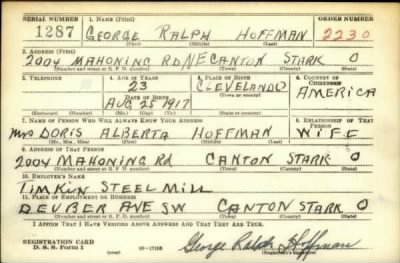 SERIAL NUMBER 1. NAME (Print) ORDER NUMBER
1287 GEORGE RALPH HOFFMAN 2230
(First) (Middle) (Last)
2. ADDRESS (Print)
2004 MAHONING RD NE CANTON STARK O
(Number and street or R. F. D. number) (Town) (County) (State)
3. TELEPHONE 4. AGE IN YEARS 5. PLACE OF BIRTH 6. COUNTRY OF CITIZENSHIP
23 CLEVELAND O
DATE OF BIRTH (Town or county) AMERICA
AUG 25 1917
(Exchange) (Number) (Mo.) (Day) (Yr.) (State or country)
7. NAME OF PERSON WHO WILL ALWAYS KNOW YOUR ADDRESS 8. RELATIONSHIP OF THAT PERSON
Mrs DORIS ALBERTA HOFFMAN WIFE
(Mr., Mrs., Miss) (First) (Middle) (Last)
9. ADDRESS OF THAT PERSON
2004 MAHONING RD CANTON STARK O
(Number and street or R. F. D. number) (Town) (County) (State)
10. EMPLOYER'S NAME
TIMKIN STEEL MILL
11. PLACE OF EMPLOYMENT OR BUSINESS
DEUBER AVE SW CANTON STARK O
(Number and street or R. F. D. number) (Town) (County) (State)
I AFFIRM THAT I HAVE VERIFIED ABOVE ANSWERS AND THAT THEY ARE TRUE.
REGISTRATION CARD
D. S. S. Form 1 (over) 16-17105 George Ralph Hoffman